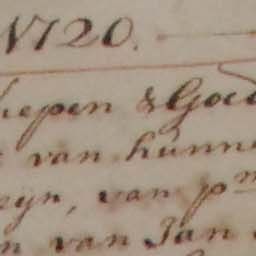 N 120.
hepen & Goed
van hunne
zyn, van pm
n van Jan